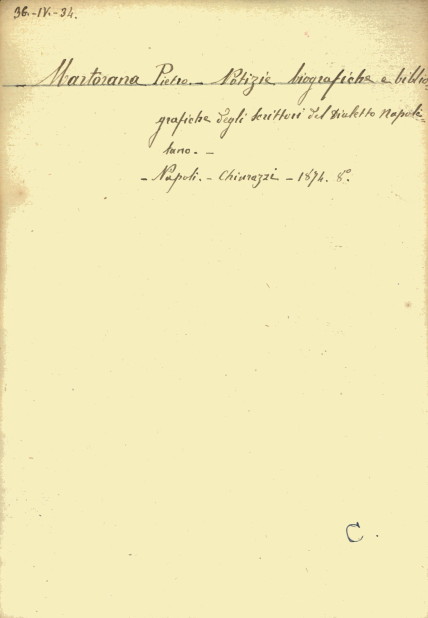 36.-IV.-34.
Martorana Pietro.- Notizie biografiche e biblio-
grafiche degli Scrittori del Dialetto Napoli-
tano. -
- Napoli. - Chiurazzi - 1874. 8°.
C.